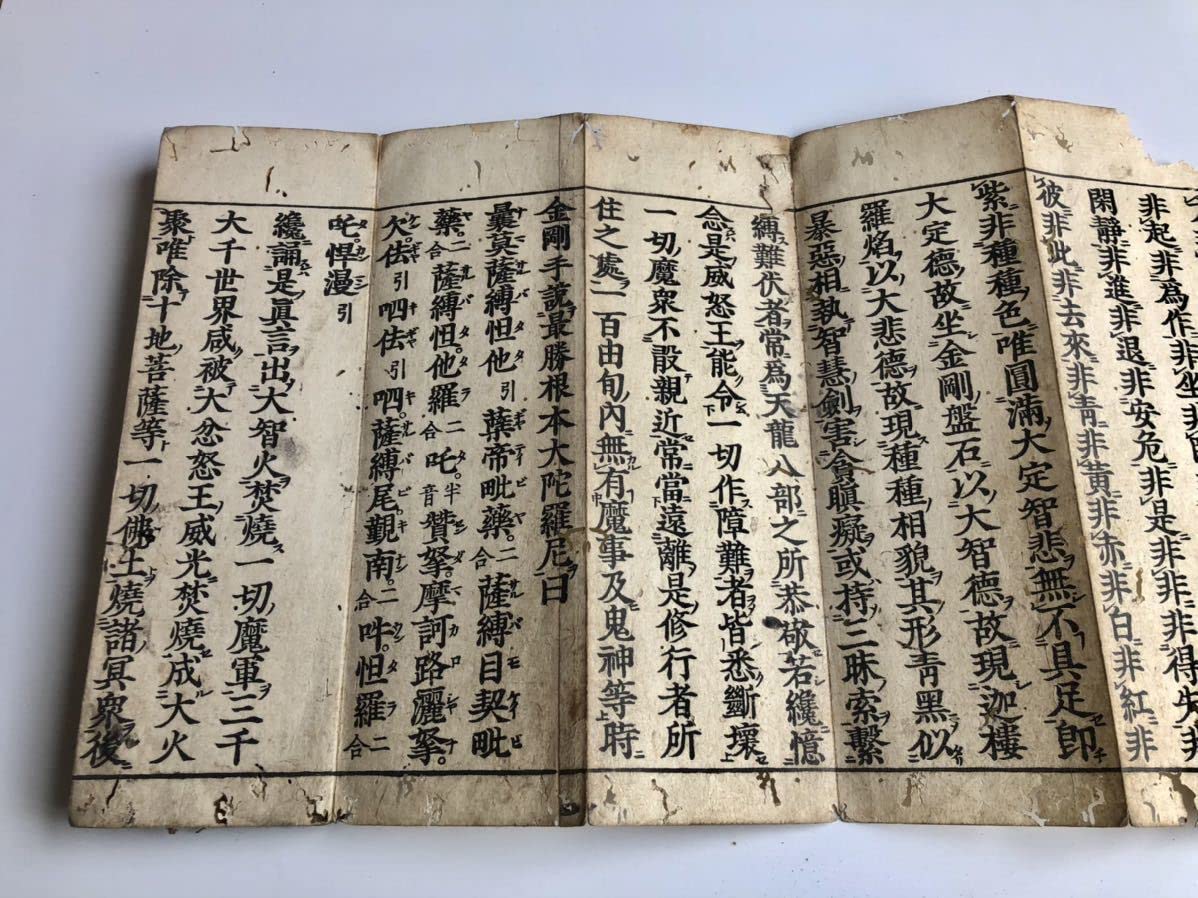 非起非爲作非坐非
閑靜非進非退非安危非是非非非得失非
彼非此非去來非青非黃非赤非白非紅非
紫非種種色唯圓滿大定智悲無不具足卽
大定德故坐金剛盤石以大智德故現迦樓
羅焰以大悲德故現種種相貌其形靑黑似
暴惡相執智慧劍害貪瞋癡或持三昧索繫
縛難伏者常爲天龍八部之所恭敬若纔憶
念是威怒王能令一切作障難者皆悉斷壞
一切魔衆不敢親近常當遠離是修行者所
住之處一百由旬內無有魔事及鬼神等時
金剛手說最勝根本大陀羅尼曰
曩莫薩縛怛他引蘖帝毗藥二合薩縛目契毗
藥二合薩縛怛他羅二合吒半音贊拏摩訶路灑拏
欠佉引呬佉引呬薩縛尾覲南二合吽怛羅二合
吒悍漫引
纔誦是眞言出大智火焚燒一切魔軍三千
大千世界咸被大忿怒王威光焚燒成大火
聚唯除十地菩薩等一切佛土燒諸冥衆後